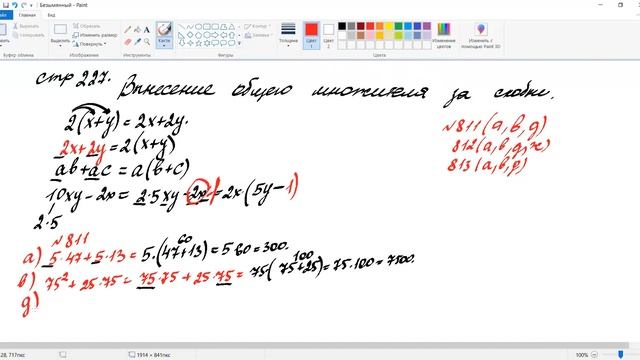 Безымянный - Paint
Вырезать
Обрезать
Изменить размер
Повернуть
Контур
Заливка
Кисти
Толщина
Цвет 1
Цвет 2
Изменение цветов
Изменить с помощью Paint 3D
Буфер обмена
Изображение
Инструменты
Фигуры
Цвета
стр 227. Вынесение общего множителя за скобки.
2(x+y)=2x+2y.
2x+2y=2(x+y)
ab+ac=a(b+c)
10xy-2x=2·5xy-2x·1=2x(5y-1)
2·5
№811(а,в,д)
812(а,в,д,ж)
813(а,в,р)
№811
а) 5·47+5·13=5·(47+13)=5·60=300.
60
в) 75²+25·75=75·75+25·75=75(75+25)=75·100=7500.
100
д)
28, 717пкс
1914 × 841пкс
100%